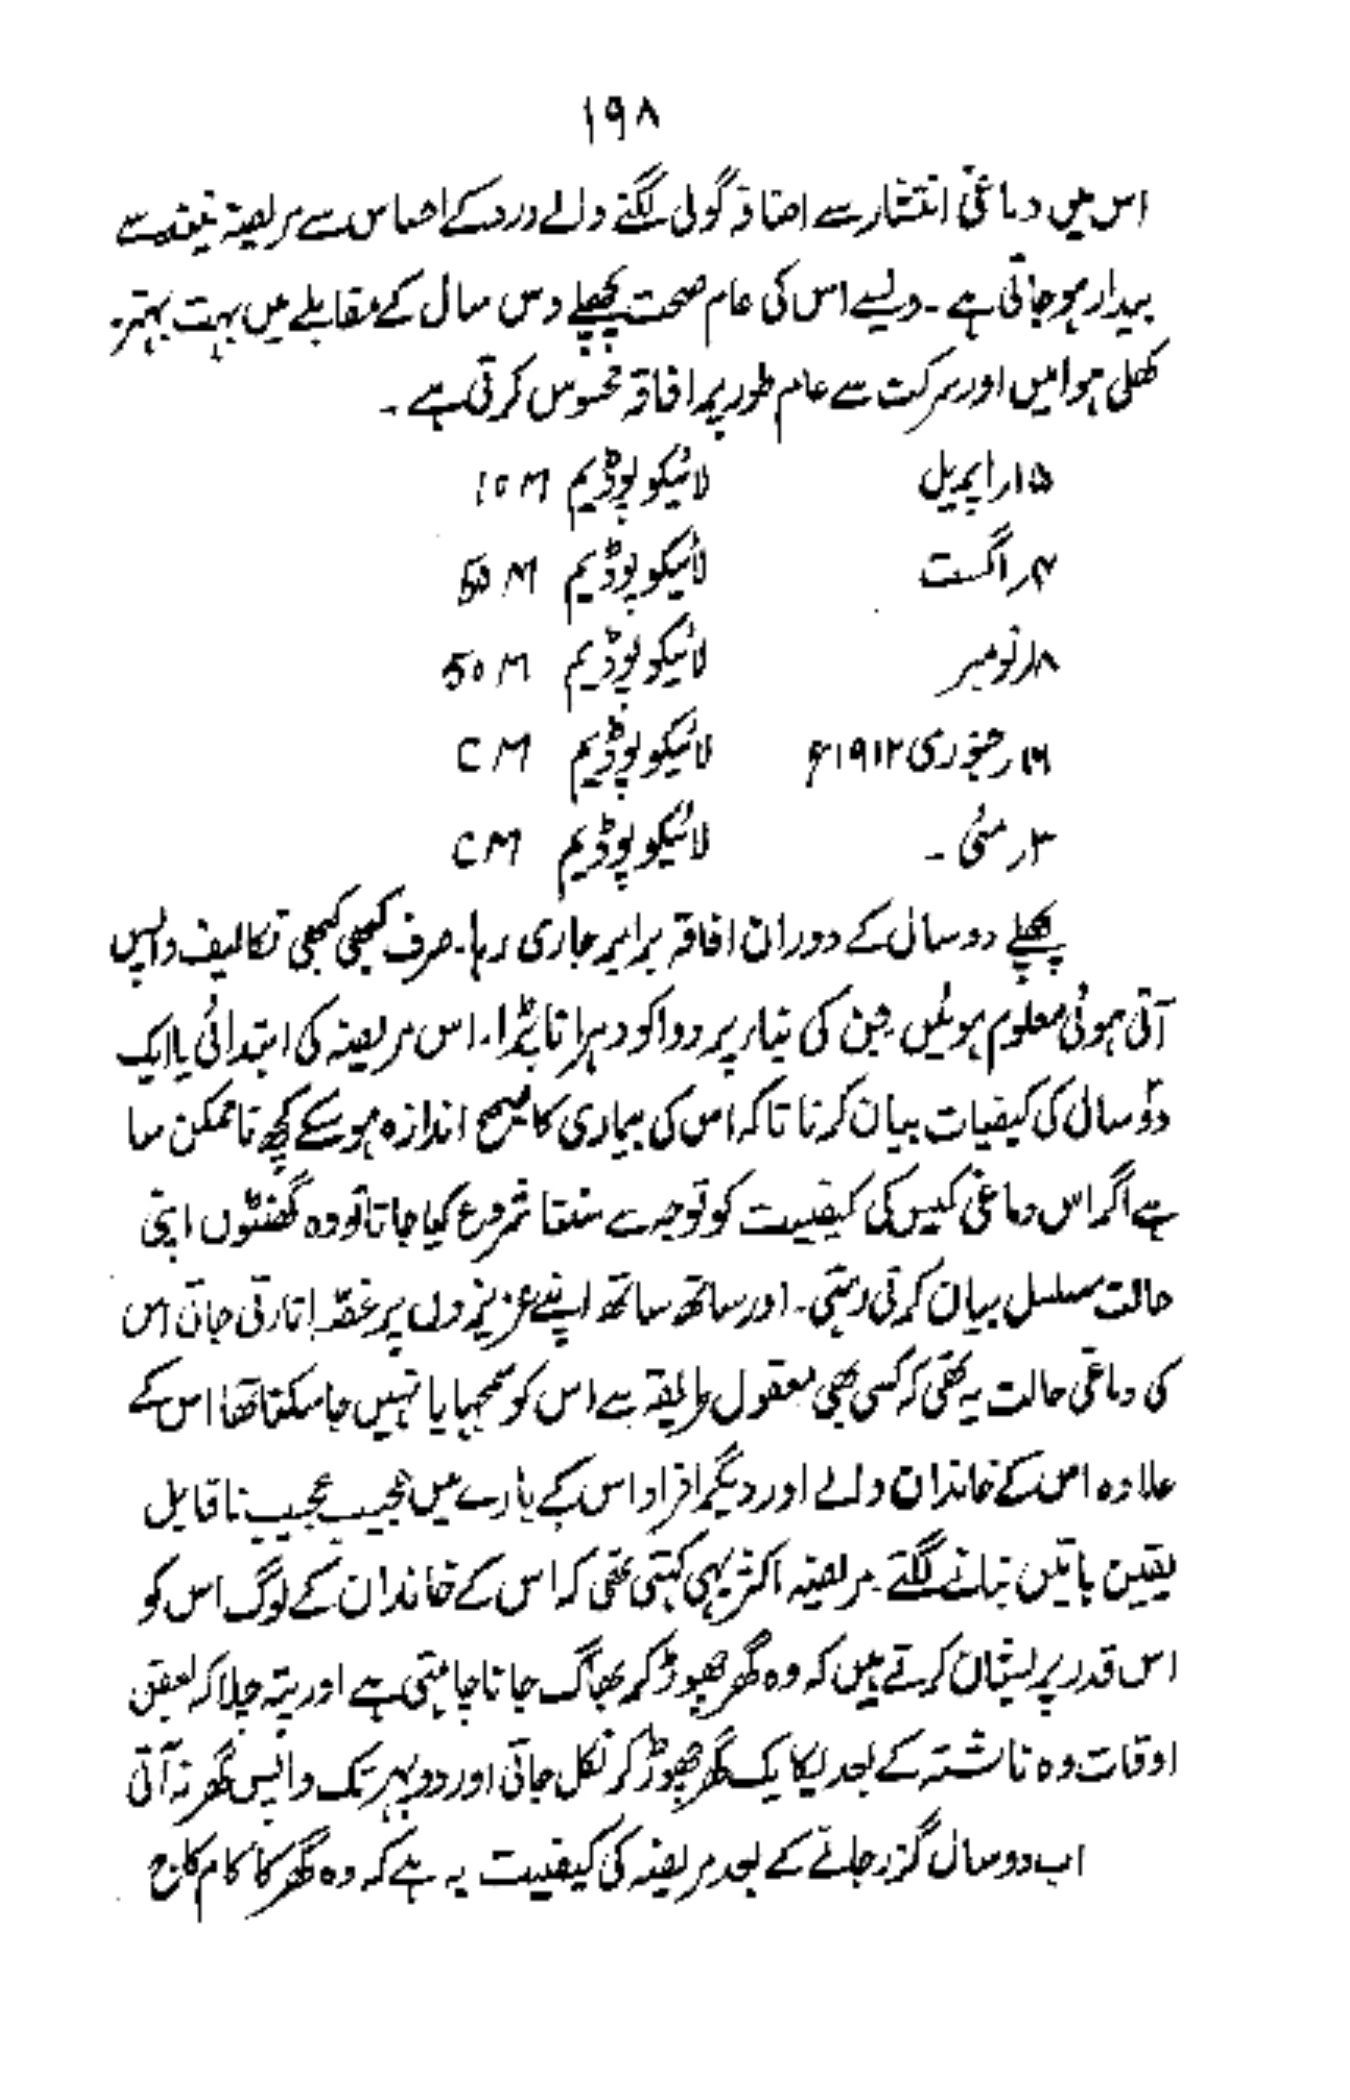 ۱۹۸
اس میں دماغی انتشار سے اضافہ گولی لگنے والے درد کے احساس سے مریضہ نیند سے
بیدار ہو جاتی ہے ۔ ویسے اس کی عام صحت پچھلے دس سال کے مقابلے میں بہت بہتر۔
کھلی ہوا میں اور حرکت سے عام طور پر افاقہ محسوس کرتی ہے ۔
۱۵؍ اپریل لائیکوپوڈیم 10 M
۴؍ اگست لائیکوپوڈیم 50 M
۱۸؍ نومبر لائیکوپوڈیم 50 M
۱۶؍ جنوری ۱۹۱۲ء لائیکوپوڈیم C M
۳؍ مئی ۔ لائیکوپوڈیم C M
پچھلے دو سال کے دوران افاقہ برابر جاری رہا۔ صرف کبھی کبھی تکالیف واپس
آتی ہوئی معلوم ہوئیں جن کی بناء پر دوا کو دہرانا پڑا۔ اس مریضہ کی ابتدائی یا ایک
دو سال کی کیفیات بیان کرنا تاکہ اس کی بیماری کا صحیح اندازہ ہو سکے کچھ ناممکن سا
ہے اگر اس دماغی کیس کی کیفیت کو توجہ سے سننا شروع کیا جاتا تو وہ گھنٹوں اپنی
حالت مسلسل بیان کرتی رہتی ۔ اور ساتھ ساتھ اپنے عزیزوں پر غصّہ اتارتی جاتی اس
کی دماغی حالت یہ تھی کہ کسی بھی معقول طریقہ سے اس کو سمجھایا نہیں جا سکتا تھا اس کے
علاوہ اس کے خاندان والے اور دیگر افراد اس کے بارے میں عجیب عجیب ناقابل
یقین باتیں بتانے لگتے ۔ مریضہ اکثر یہی کہتی تھی کہ اس کے خاندان کے لوگ اس کو
اس قدر پریشان کرتے ہیں کہ وہ گھر چھوڑ کر بھاگ جانا چاہتی ہے اور پتہ چلا کہ بعض
اوقات وہ ناشتہ کے بعد یکایک گھر چھوڑ کر نکل جاتی اور دوپہر تک واپس گھر نہ آتی
اب دو سال گزر جانے کے بعد مریضہ کی کیفیت یہ ہے کہ وہ گھر کا کام کاج